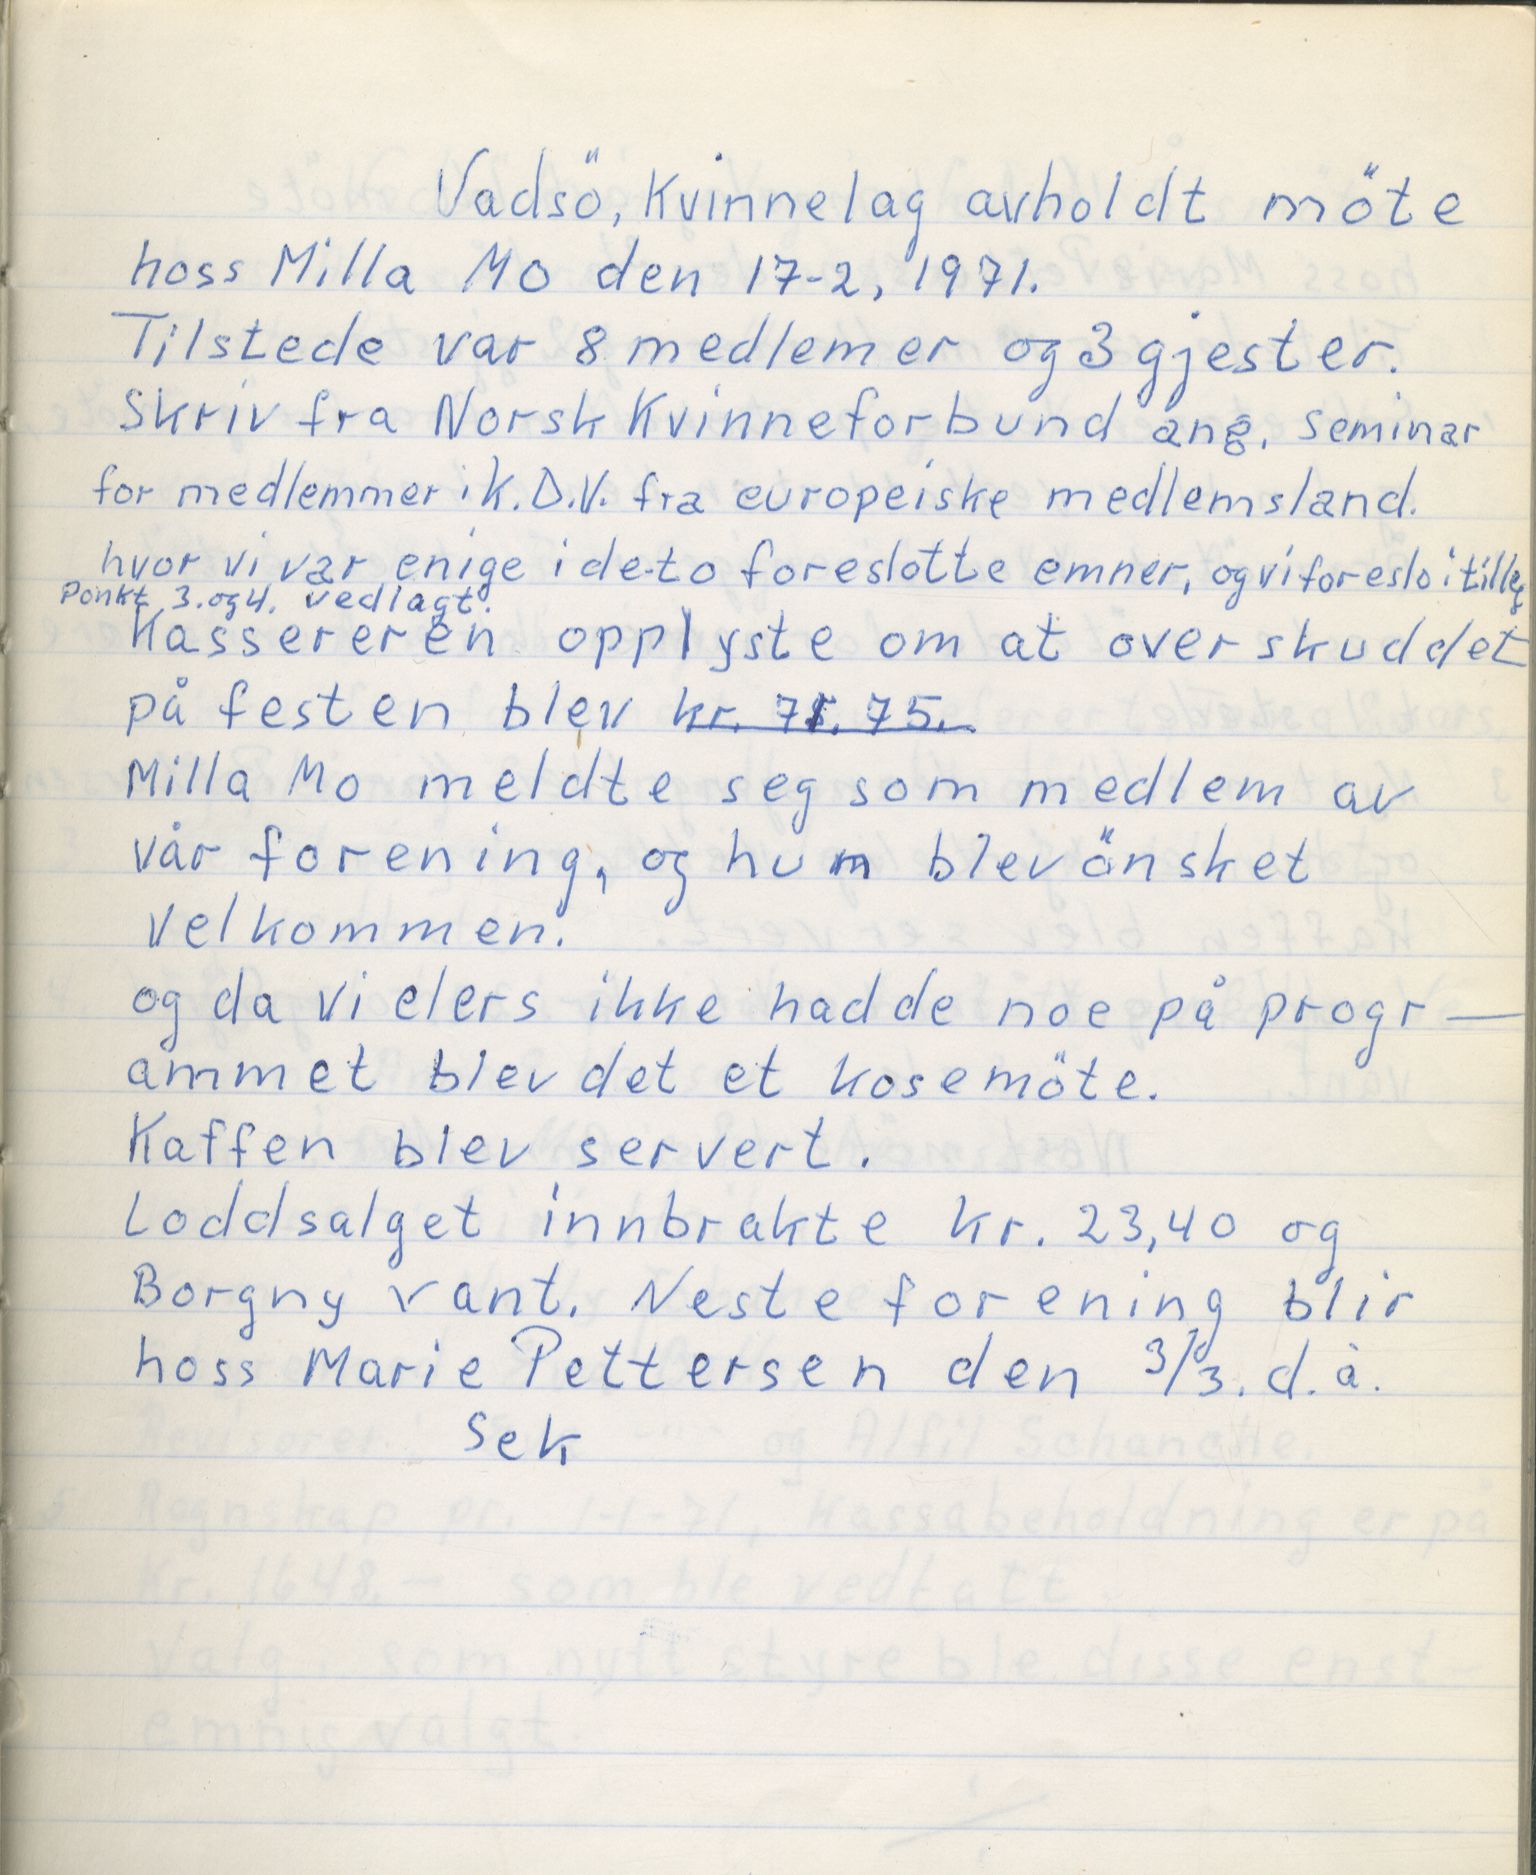 Vadsö, Kvinnelag avholdt möte
hoss Milla Mo den 17-2, 1971.
Tilstede var 8 medlemer og 3 gjester.
Skriv fra Norsk Kvinneforbund ang. seminar
for medlemmer i K.D.V. fra europeiske medlemsland.
hvor vi var enige i de to foreslotte emner, og vi foreslo i tilleg
Ponkt 3. og 4. vedlagt.
Kassereren opplyste om at overskuddet
på festen blev kr. 71. 75.
Milla Mo meldte seg som medlem av
vår forening, og hun blev önsket
velkommen.
og da vi elers ikke hadde noe på progr—
ammet blev det et kosemöte.
Kaffen blev servert.
Loddsalget innbrakte kr. 23,40 og
Borgny vant. Neste forening blir
hoss Marie Pettersen den 3/3. d.å.
Sek